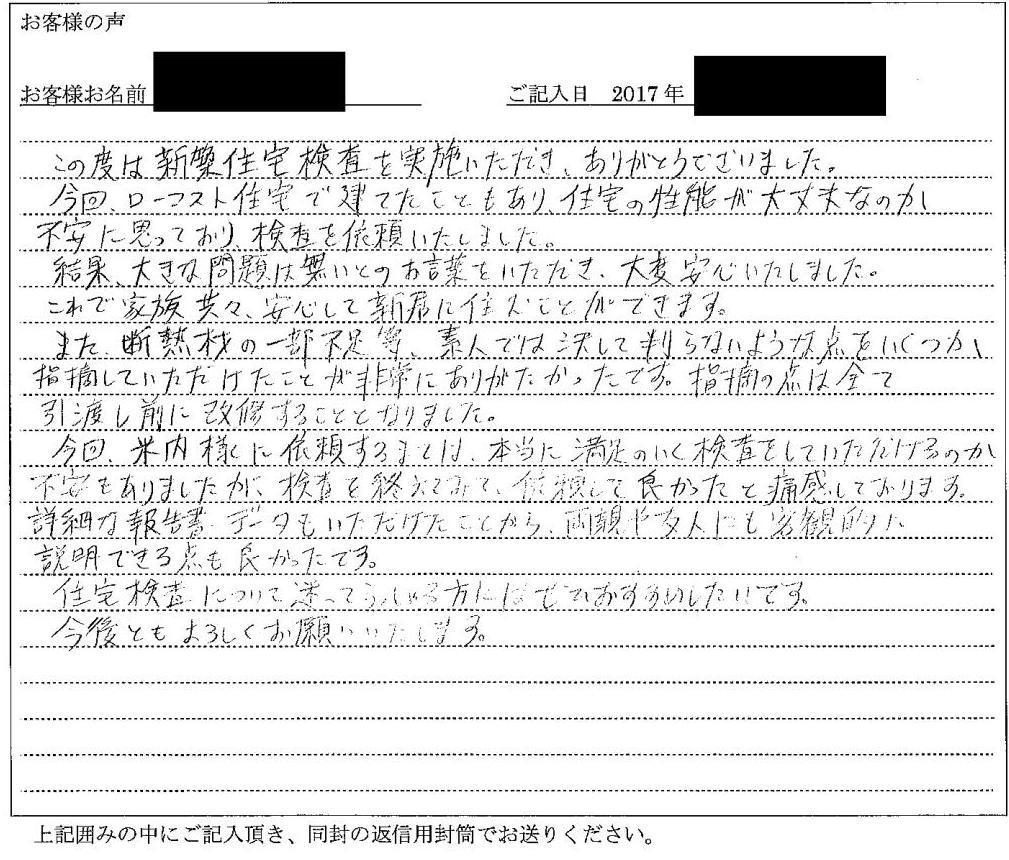 お客様の声
お客様お名前
ご記入日 2017年
この度は新築住宅検査を実施いただき、ありがとうございました。
今回、ローコスト住宅で建てたこともあり、住宅の性能が大丈夫なのか
不安に思っており、検査を依頼いたしました。
結果、大きな問題は無いとのお言葉をいただき、大変安心いたしました。
これで家族共々、安心して新居に住むことができます。
また、断熱材の一部不足等、素人では決して判らないような点をいくつか
指摘していただけたことが非常にありがたかったです。指摘の点は全て
引渡し前に改修することとなりました。
今回、米内様に依頼するまでは、本当に満足のいく検査をしていただけるのか
不安もありましたが、検査を終えてみて、依頼して良かったと痛感しております。
詳細な報告書・データもいただけたことから、両親や友人にも客観的に
説明できる点も良かったです。
住宅検査について迷ってらっしゃる方にはぜひおすすめしたいです。
今後ともよろしくお願いいたします。
上記囲みの中にご記入頂き、同封の返信用封筒でお送りください。